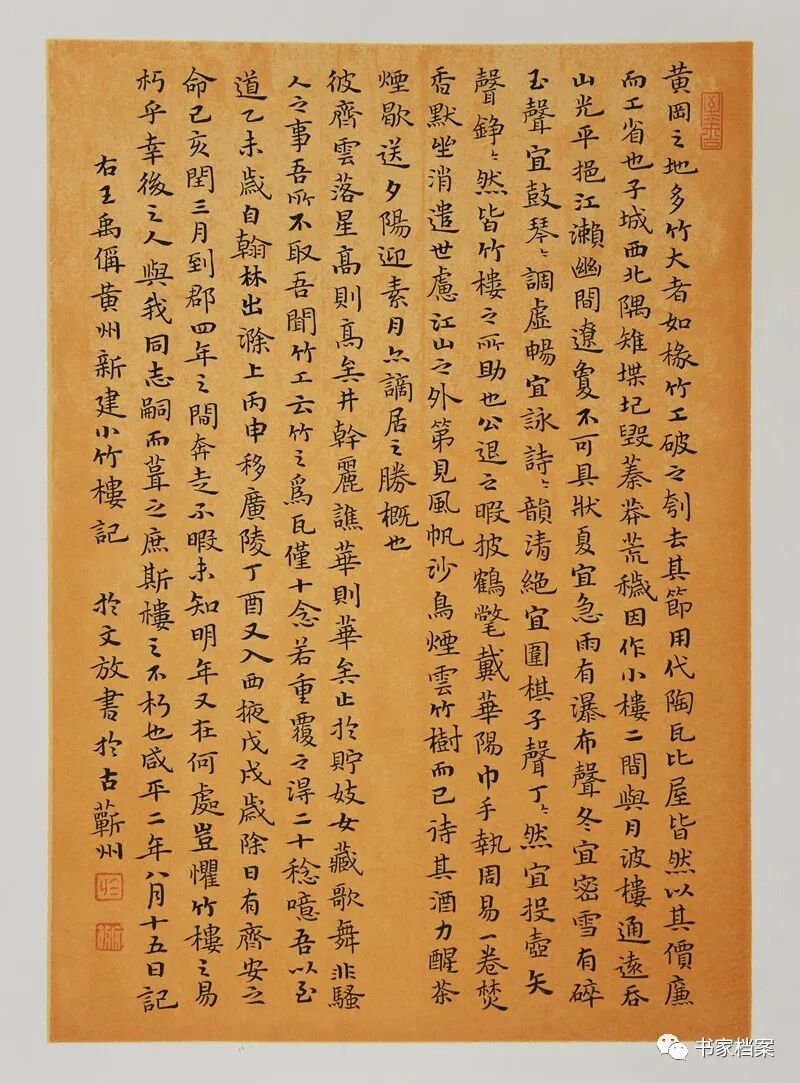 黄岡之地多竹大者如椽竹工破之刳去其節用代陶瓦比屋皆然以其價廉
而工省也子城西北隅雉堞圮毀蓁莽荒穢因作小樓二間與月波樓通遠吞
山光平挹江瀨幽闃遼夐不可具狀夏宜急雨有瀑布聲冬宜密雪有碎
玉聲宜鼓琴〻調虛暢宜詠詩〻韻清絕宜圍棋子聲丁〻然宜投壺矢
聲錚〻然皆竹樓之所助也公退之暇披鶴氅戴華陽巾手執周易一卷焚
香默坐消遣世慮江山之外第見風帆沙鳥煙雲竹樹而已待其酒力醒茶
煙歇送夕陽迎素月亦謫居之勝概也
彼齊雲落星高則高矣井幹麗譙華則華矣止於貯妓女藏歌舞非騷
人之事吾所不取吾聞竹工云竹之爲瓦僅十稔若重覆之得二十稔噫吾以至
道乙未歲自翰林出滁上丙申移廣陵丁酉又入西掖戊戌歲除日有齊安之
命己亥閏三月到郡四年之間奔走不暇未知明年又在何處豈懼竹樓之易
朽乎幸後之人與我同志嗣而葺之庶斯樓之不朽也咸平二年八月十五日記
右王禹偁黄州新建小竹樓記 於文放書於古蘄州
书家档案